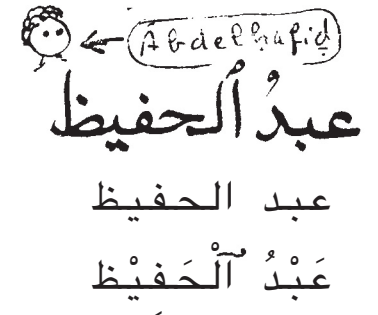 Abdelhafiḍ
عبدُ ٱلحفيظ
عبد الحفيظ
عَبْدُ ٱلْحَفيْظ